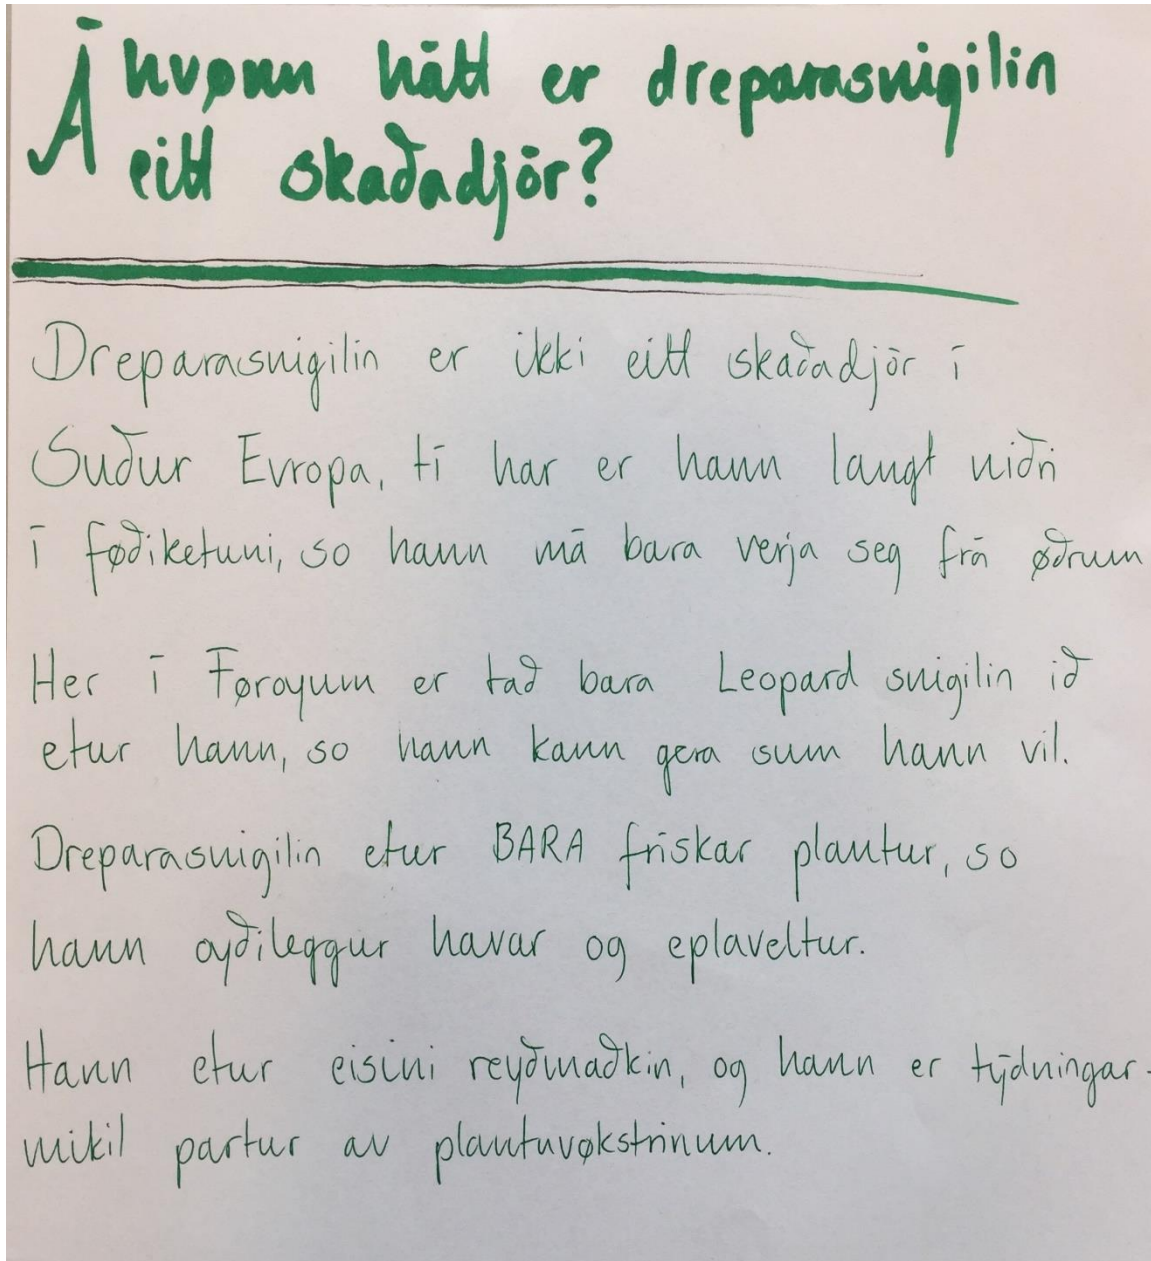 Á hvønn hátt er dreparasnigilin
eitt skaðadjór?
Dreparasnigilin er ikki eitt skaðadjór í
Suður Evropa, tí har er hann langt niðri
í føðiketuni, so hann má bara verja seg frá øðrum
Her í Føroyum er tað bara Leopard snigilin ið
etur hann, so hann kann gera sum hann vil.
Dreparasnigilin etur BARA friskar plantur, so
hann oyðileggur havar og eplaveltur.
Hann etur eisini reyðmaðkin, og hann er týdningar-
mikil partur av plantuvøkstrinum.